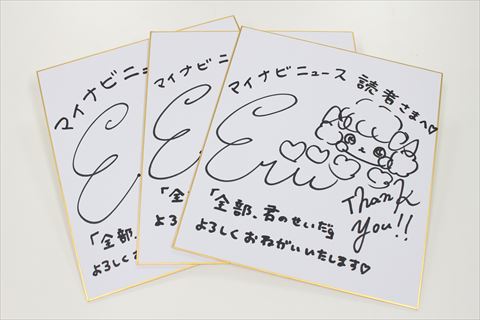 マイナビニュース 読者さまへ♡
Eru
Thank
You!!
「全部、君のせいだ」
よろしくおねがいいたします♡
マイナビニ
「全部、
よろしくお
マイナビニュ
「全部、
よろしくお